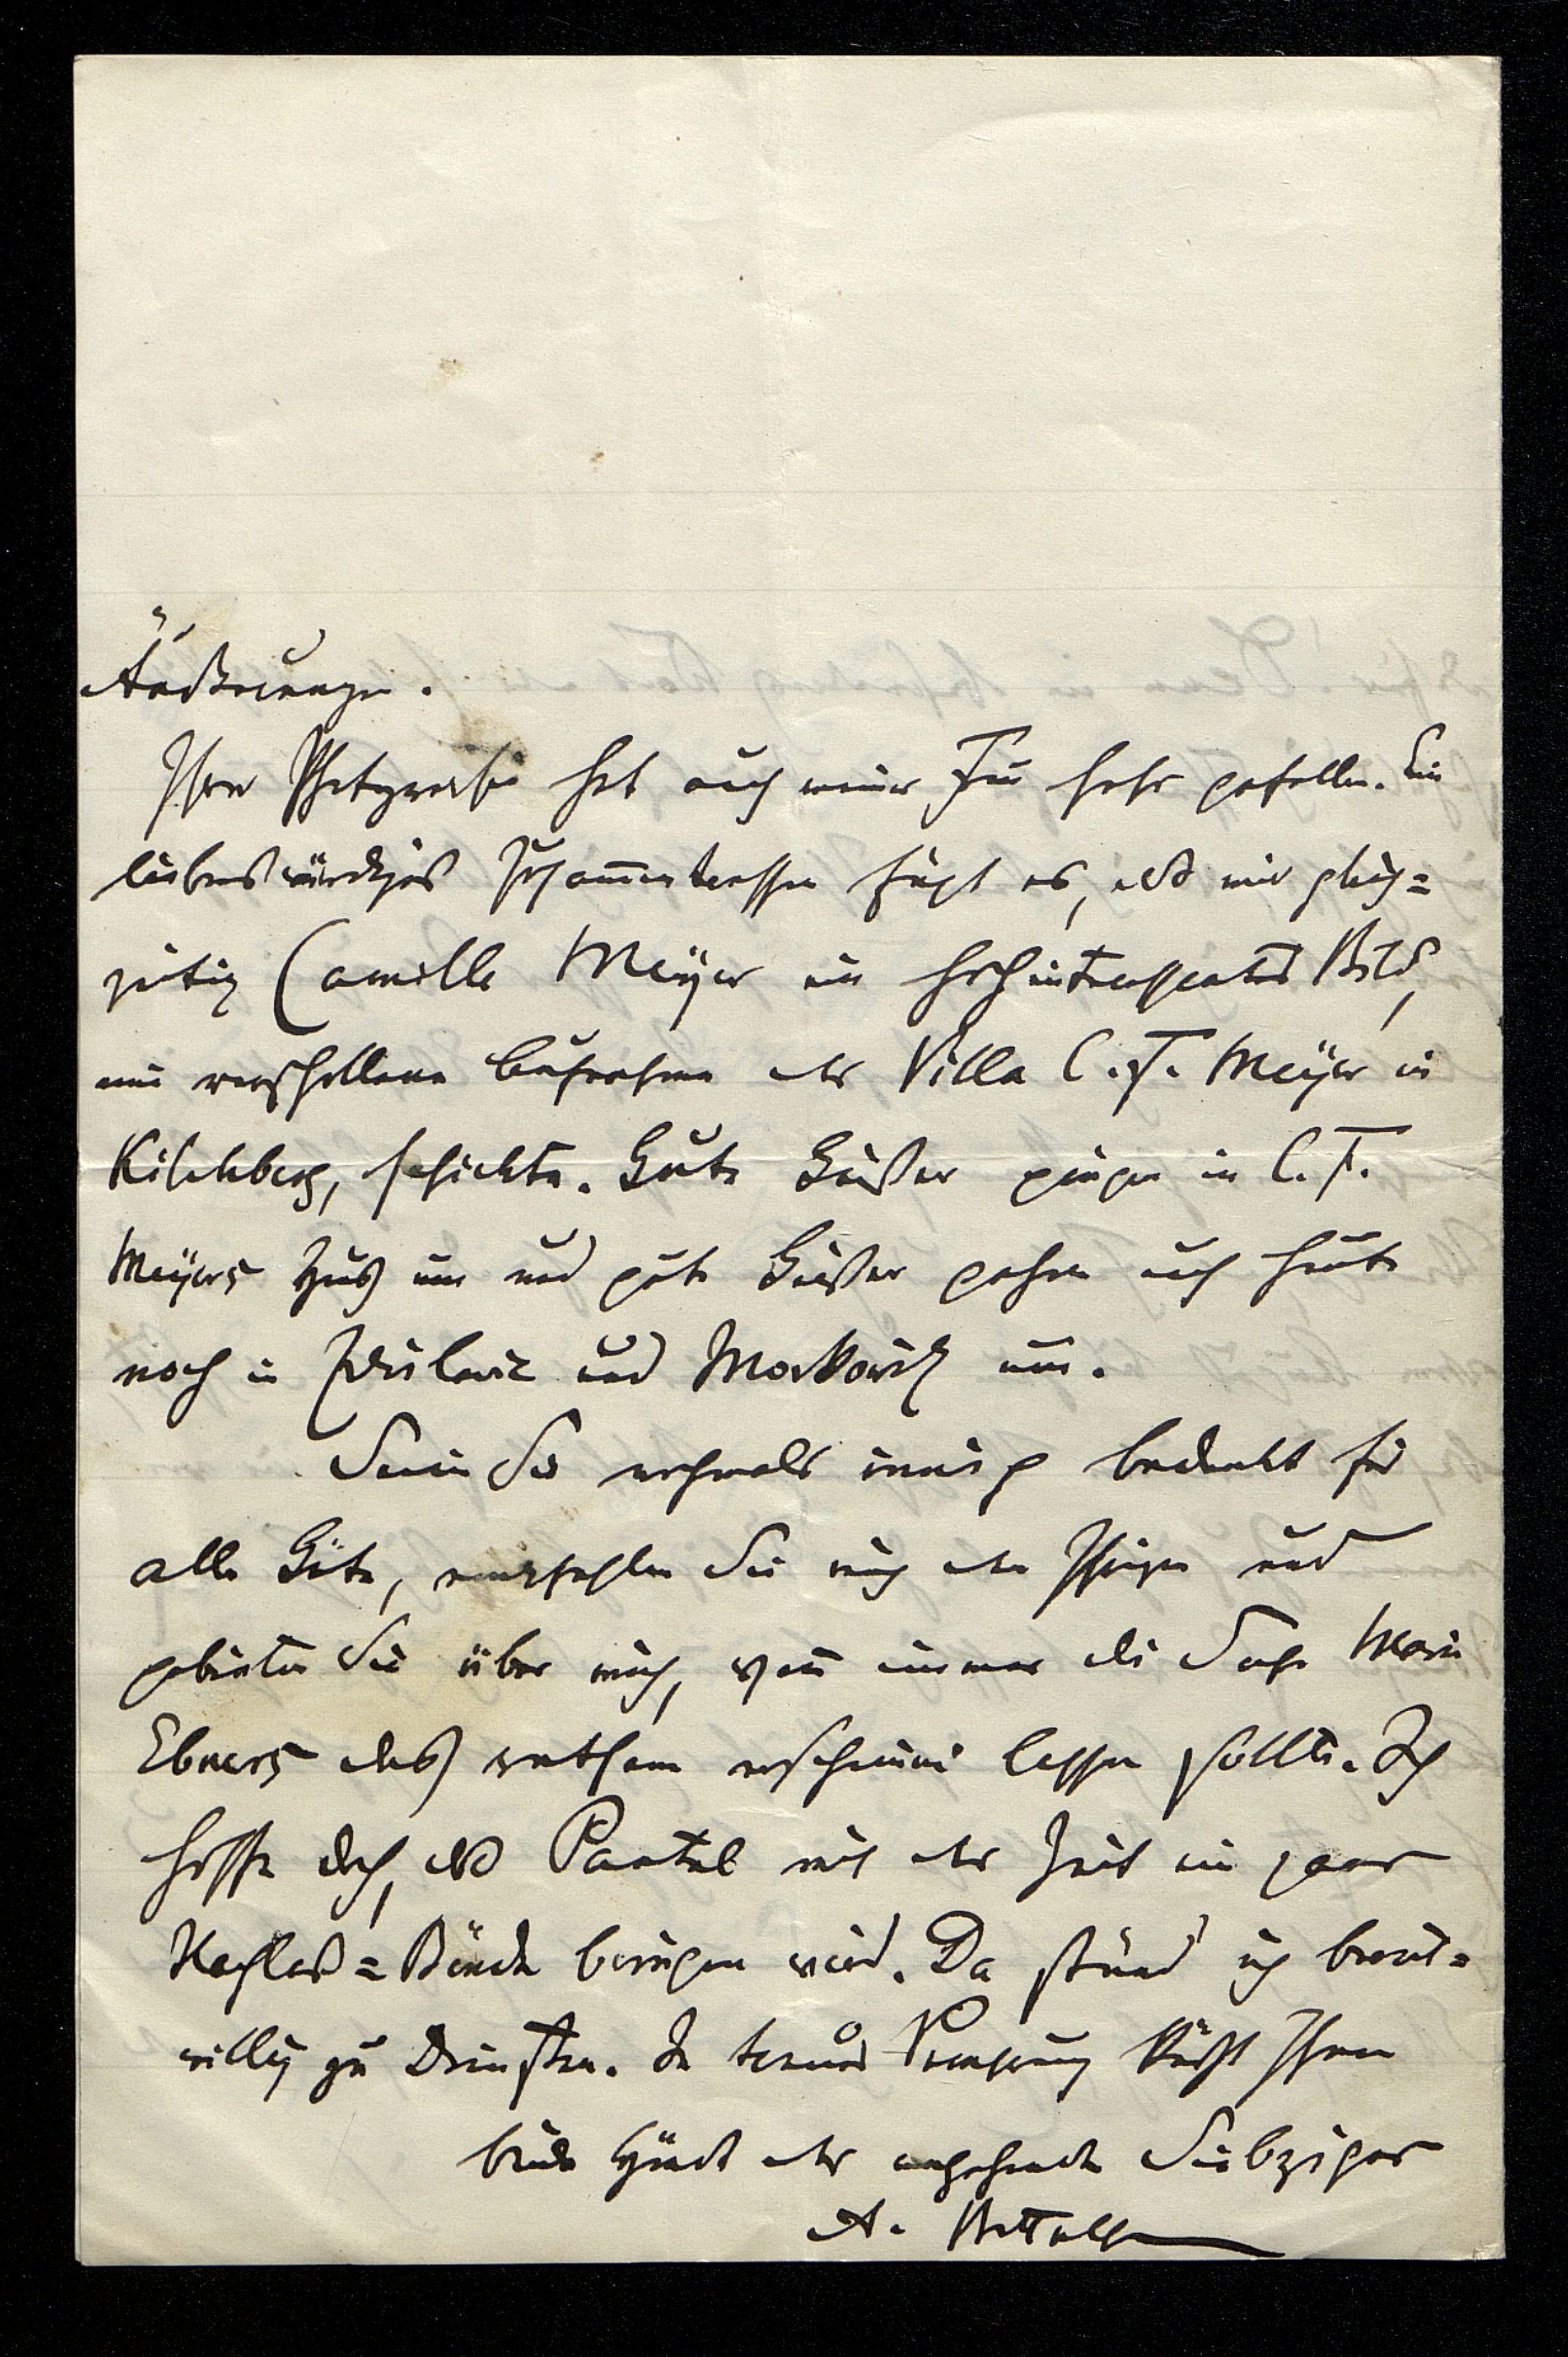 Äußerungen.
Ihre Photografie hat auch meiner Frau sehr gefallen. Ein
liebenswürdiges Zusam̄entreffen fügt es, daß mir gleich=
zeitig Camilla Meÿer ein hochinteressantes Bild,
eine verschollene Aufnahme der Villa C. F. Meÿer in
Kilchberg, schickte. Gute Geister gingen in C. F.
Meÿers Haus um und gute Geister gehen auch heute
noch in Zdislavic und Morkowitz um.
Seien Sie nochmals innig bedankt für
alle Güte, empfehlen Sie mich den Ihrigen und
gebieten Sie über mich, wan̄ immer die Sache Marie
Ebners das rathsam erscheinen lassen sollte. Ich
hoffe doch, daß Paetel mit der Zeit ein paar
Nachlaß=Bände bringen wird. Da stünd' ich bereit=
willig zu Diensten. In treuer Verehrung küßt Ihnen
beide Hände der angehende Siebziger
A. Bettelh